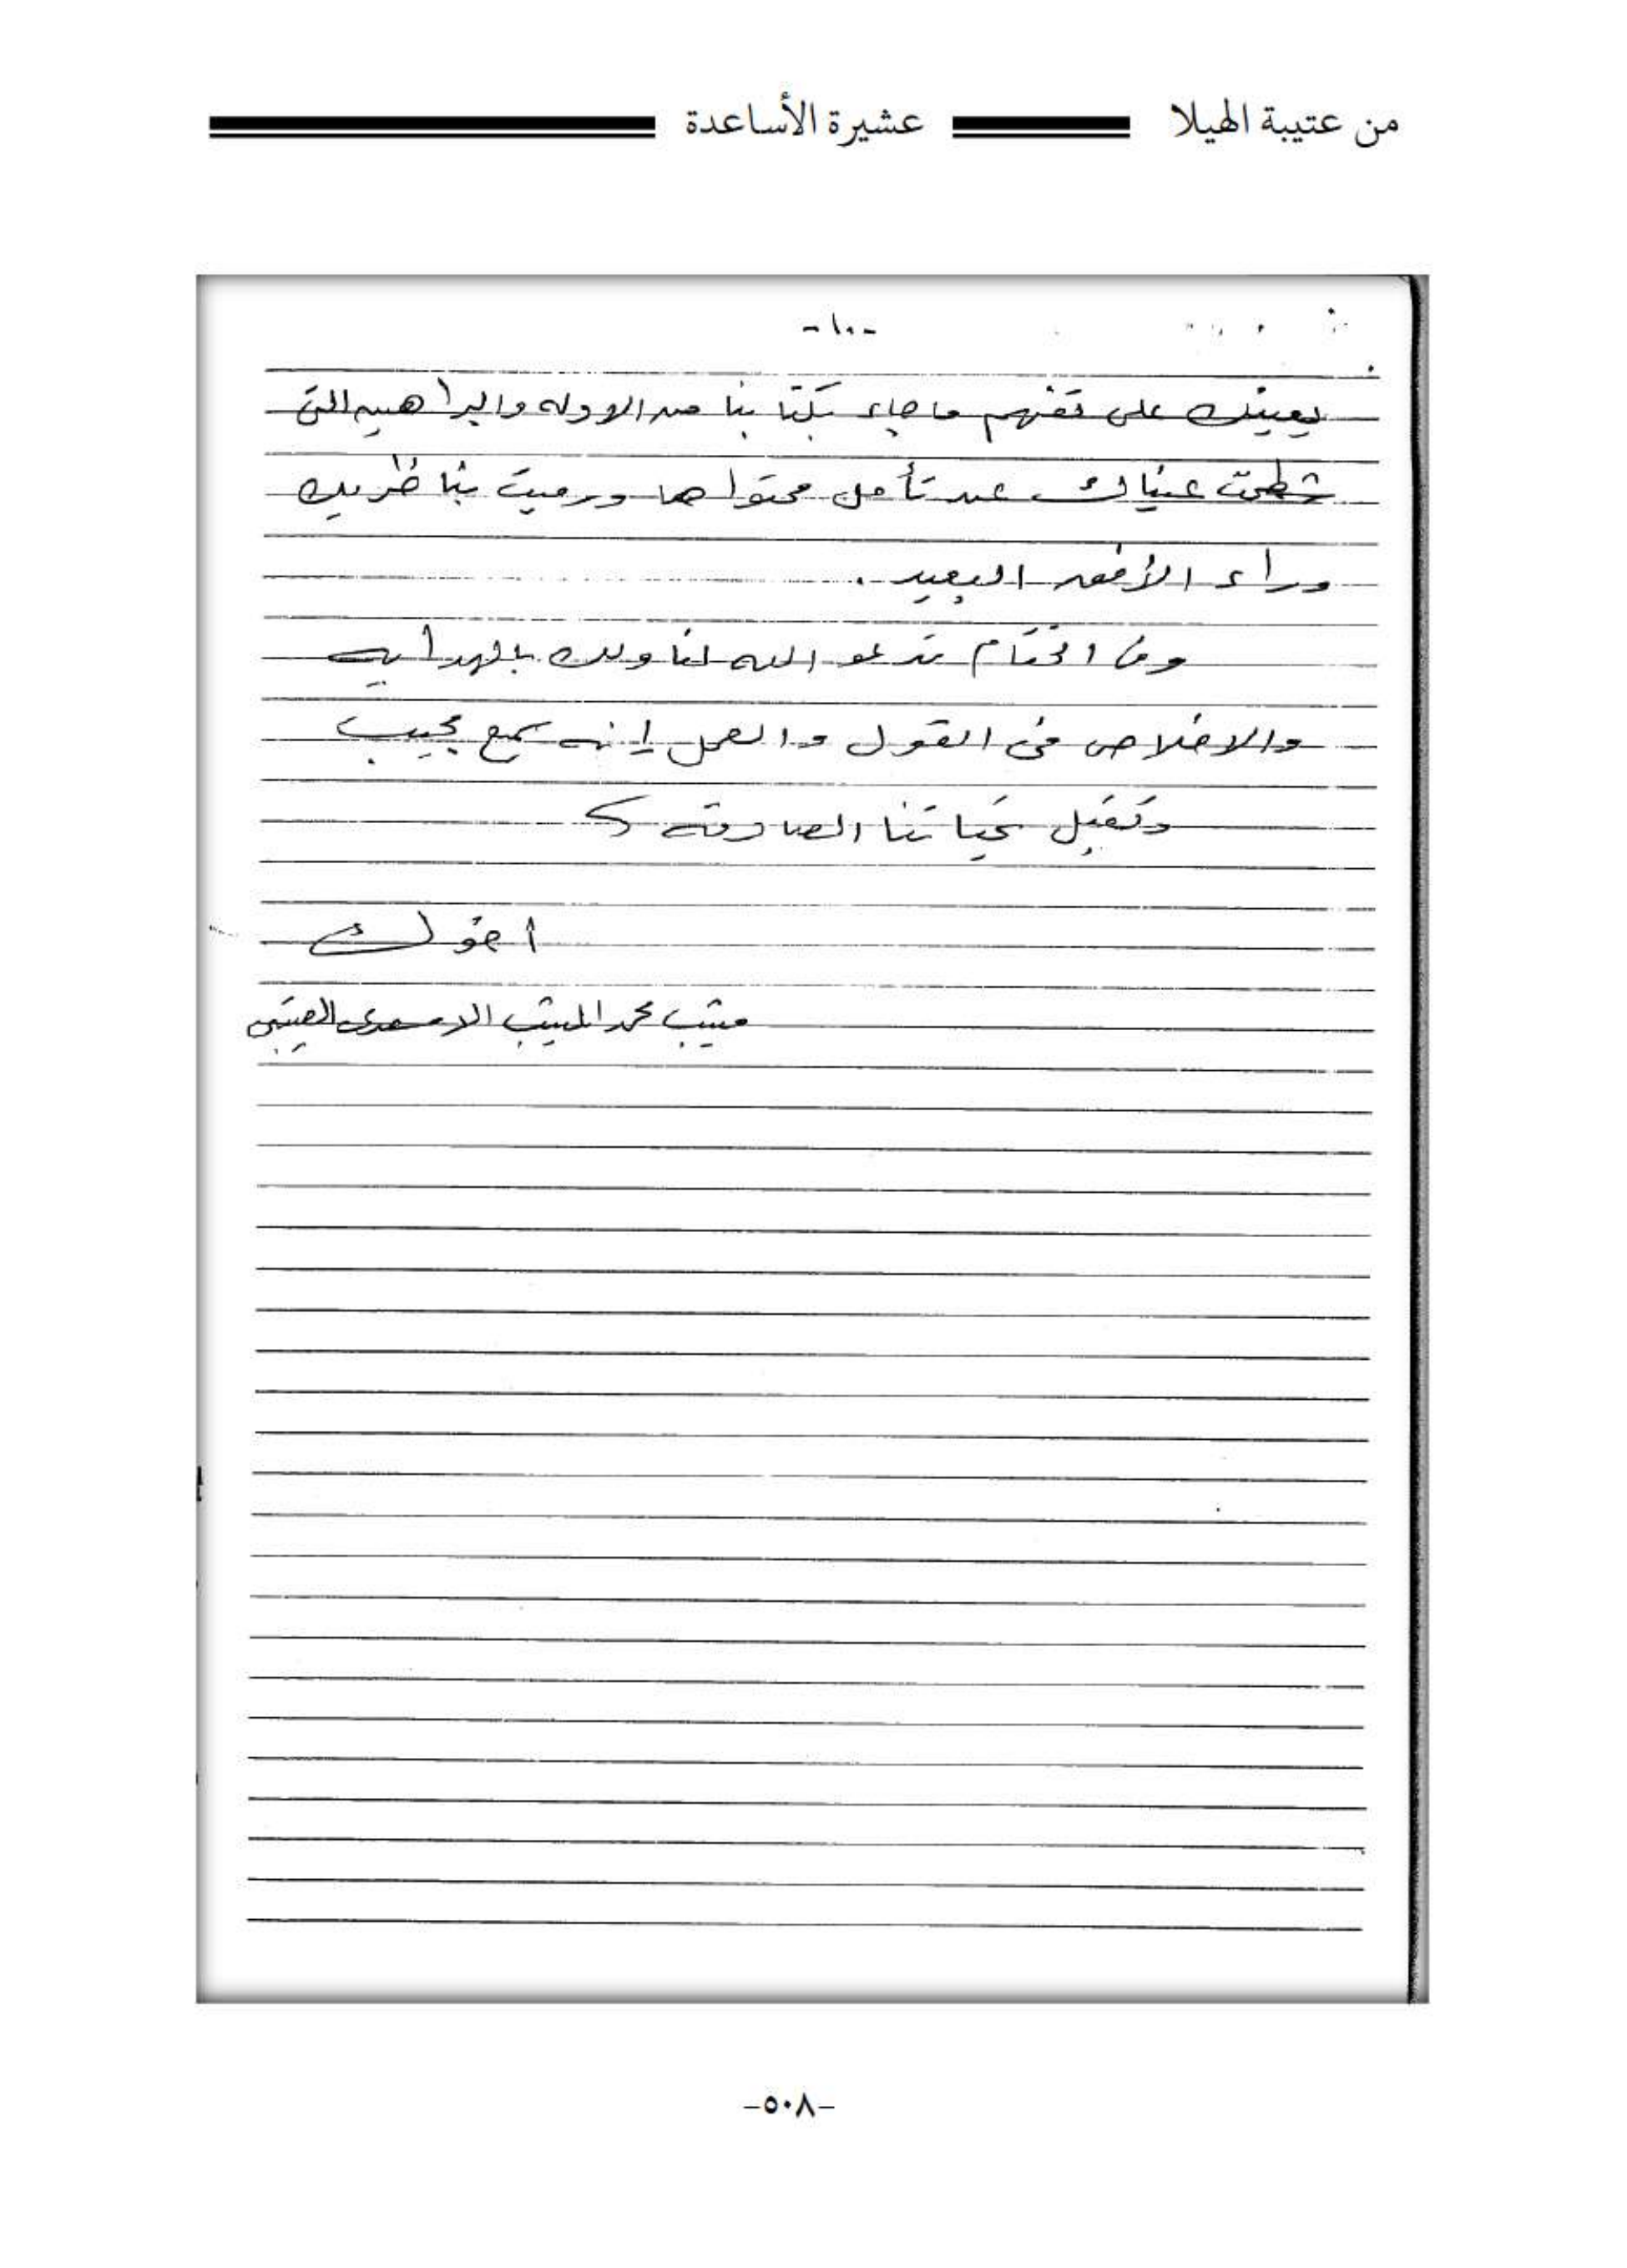 من عتيبة الهيلا عشيرة الأساعدة
-١٠-
يعينك على تفهم ما جاء بكتابنا من الادله والبراهين التي
شطحت عيناك عن تأمل محتواها ورميت بناظريك
وراء الأفق البعيد .
وفي الختام ندعو الله لنا ولك بالهدايه
والاخلاص في القول والعمل إنه سميع مجيب
وتقبل تحياتنا الصادقه
أخوك
متيب محمد المتيب الاسعدي العتيبي
-٥٠٨-